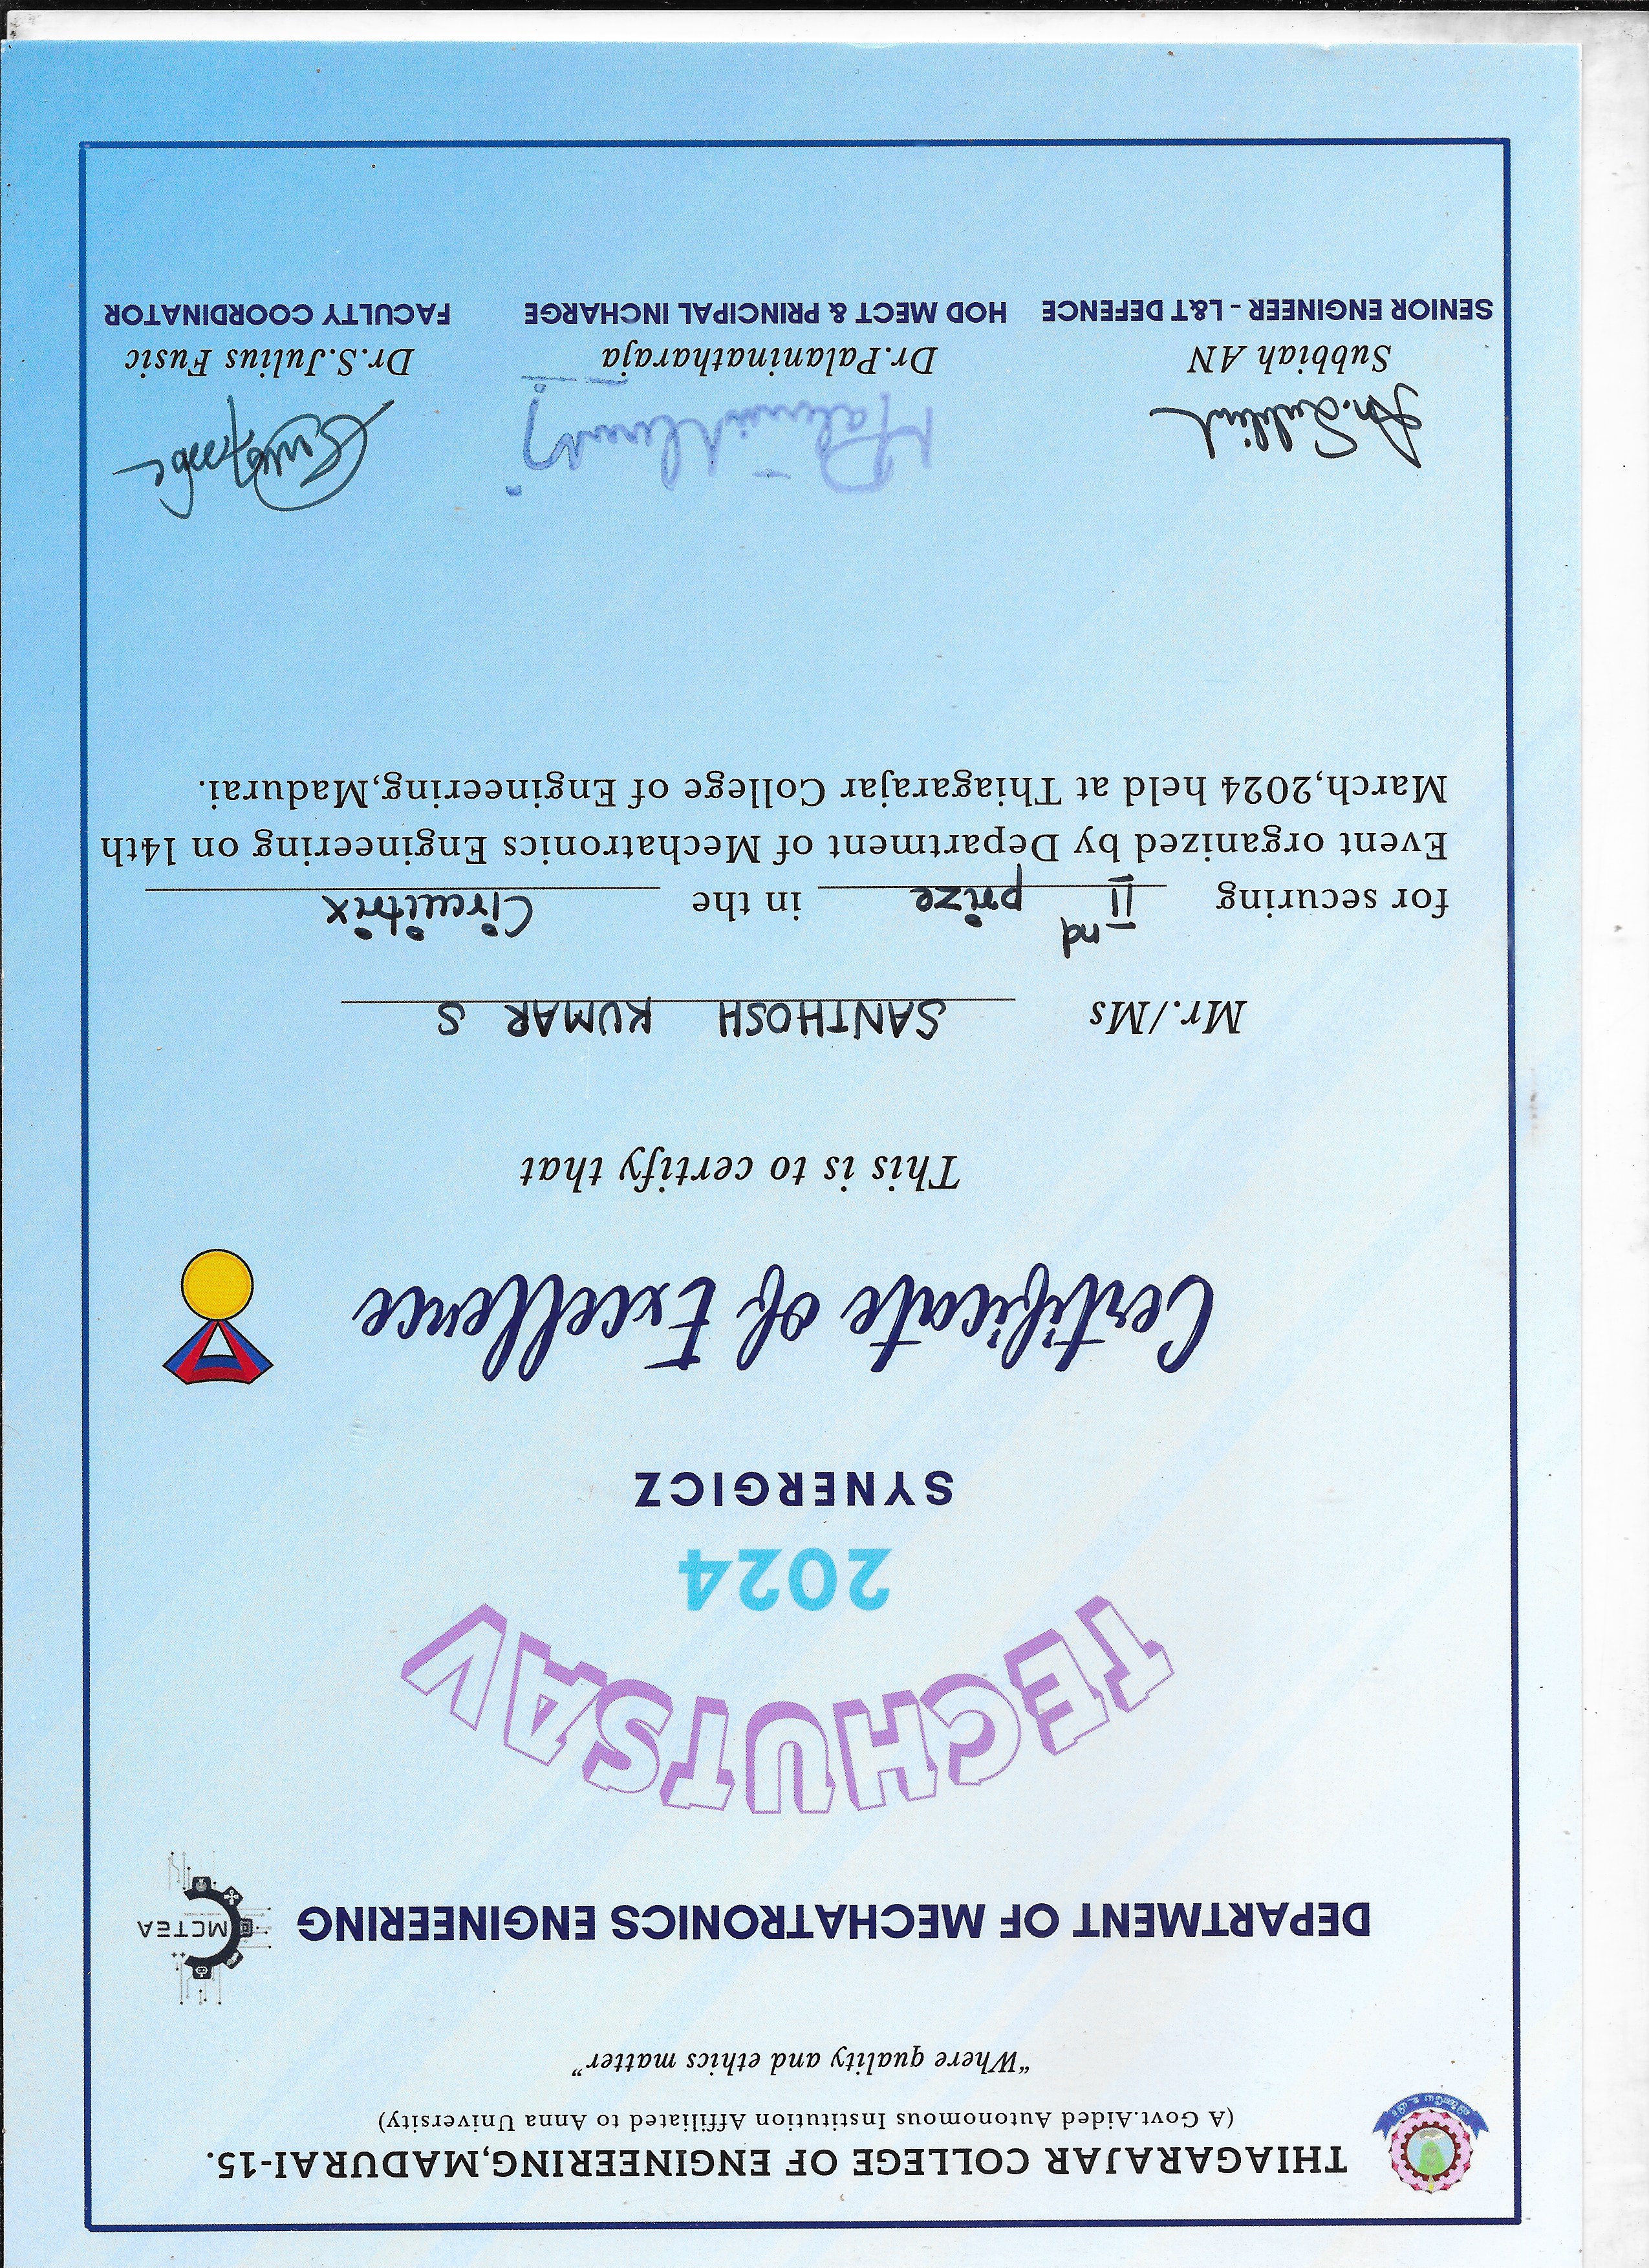 THIAGARAJAR COLLEGE OF ENGINEERING,MADURAI-15.
(A Govt.Aided Autonomous Institution Affiliated to Anna University)
"Where quality and ethics matter"
DEPARTMENT OF MECHATRONICS ENGINEERING
MCTEA
TECHUTSAV
2024
SYNERGICZ
Certificate of Excellence
This is to certify that
Mr./Ms SANTHOSH KUMAR S
for securing II nd prize in the Circuitrix
Event organized by Department of Mechatronics Engineering on 14th
March,2024 held at Thiagarajar College of Engineering,Madurai.
Subbiah AN Dr.Palaninatharaja Dr.S.Julius Fusic
SENIOR ENGINEER - L&T DEFENCE HOD MECT & PRINCIPAL INCHARGE FACULTY COORDINATOR